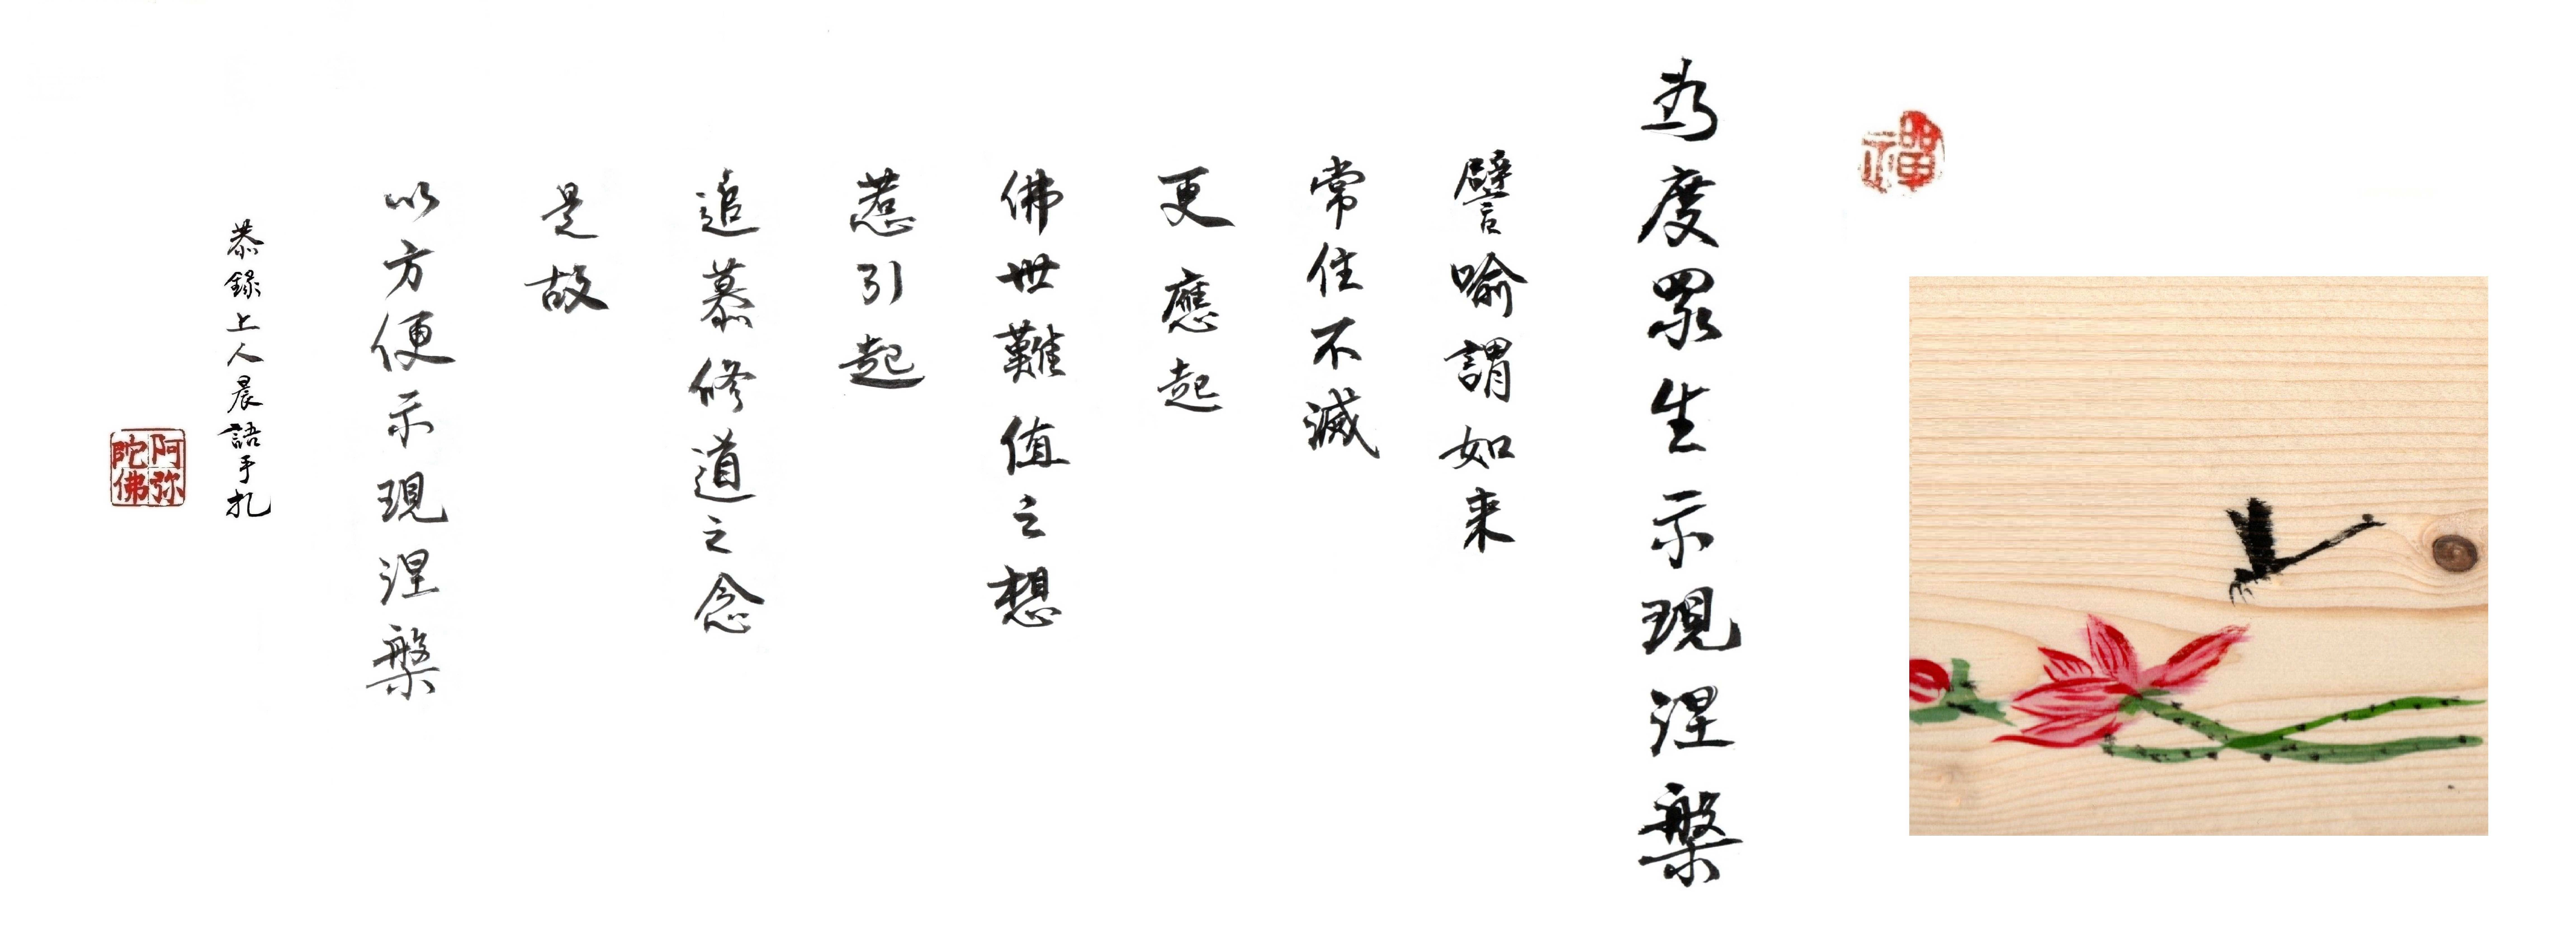 禪
為度眾生示現涅槃
譬喻謂如来
常住不滅
更應起
佛世難值之想
惹引起
追慕修道之念
是故
以方便示現涅槃
恭錄上人晨語手札
阿弥陀佛